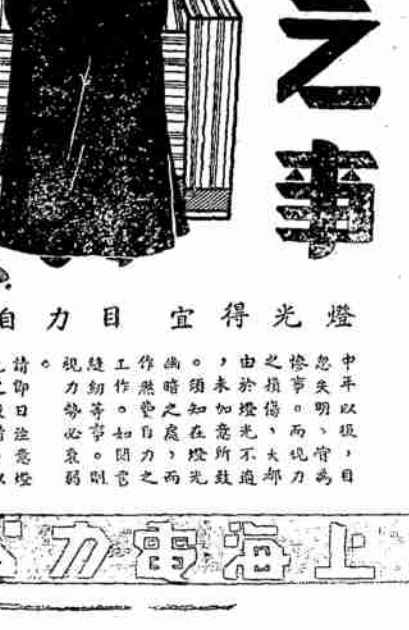 之事
燈光得宜目力自
中年以後，目
忽失明、甯為
慘事。而視力
之損傷，大都
由於燈光不適
，未加意所致
。須知在燈光
幽暗之處，而
作煞費目力之
工作。如閱書
縫紉等事。則
視力勢必衰弱
。
請即日注意燈
上海電力公